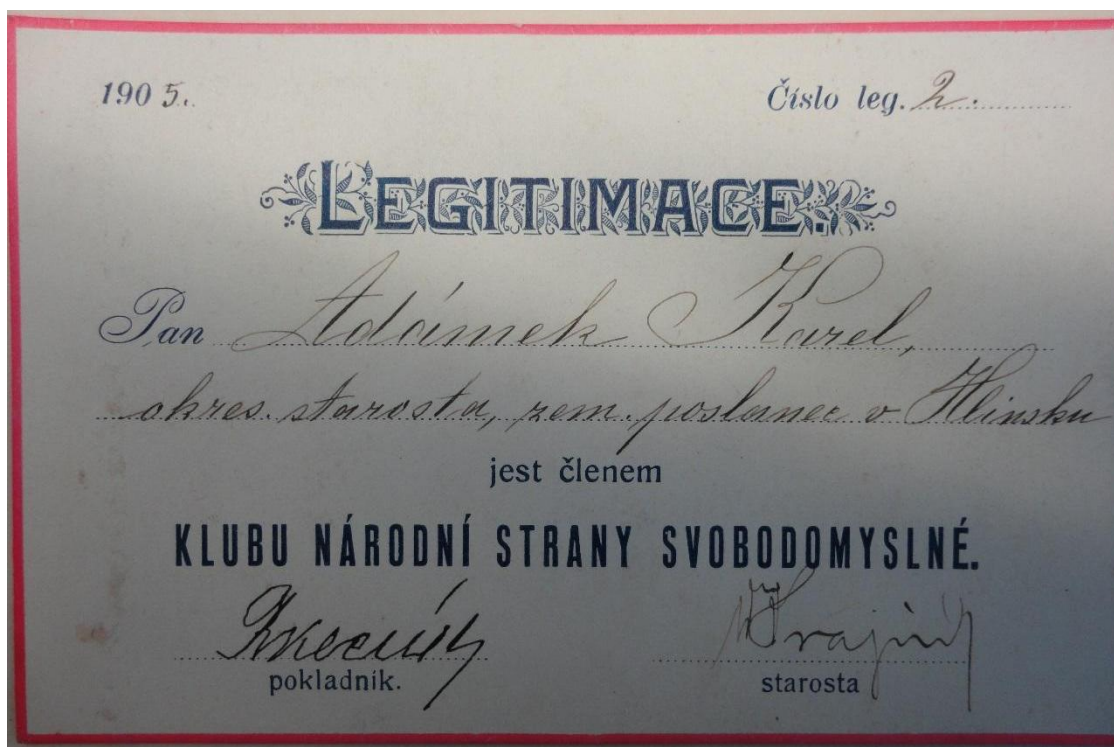 1905. Číslo leg. 2.
LEGITIMACE.
Pan Adámek Karel,
okres. starosta, zem. poslanec v Hlinsku
jest členem
KLUBU NÁRODNÍ STRANY SVOBODOMYSLNÉ.
pokladník. starosta